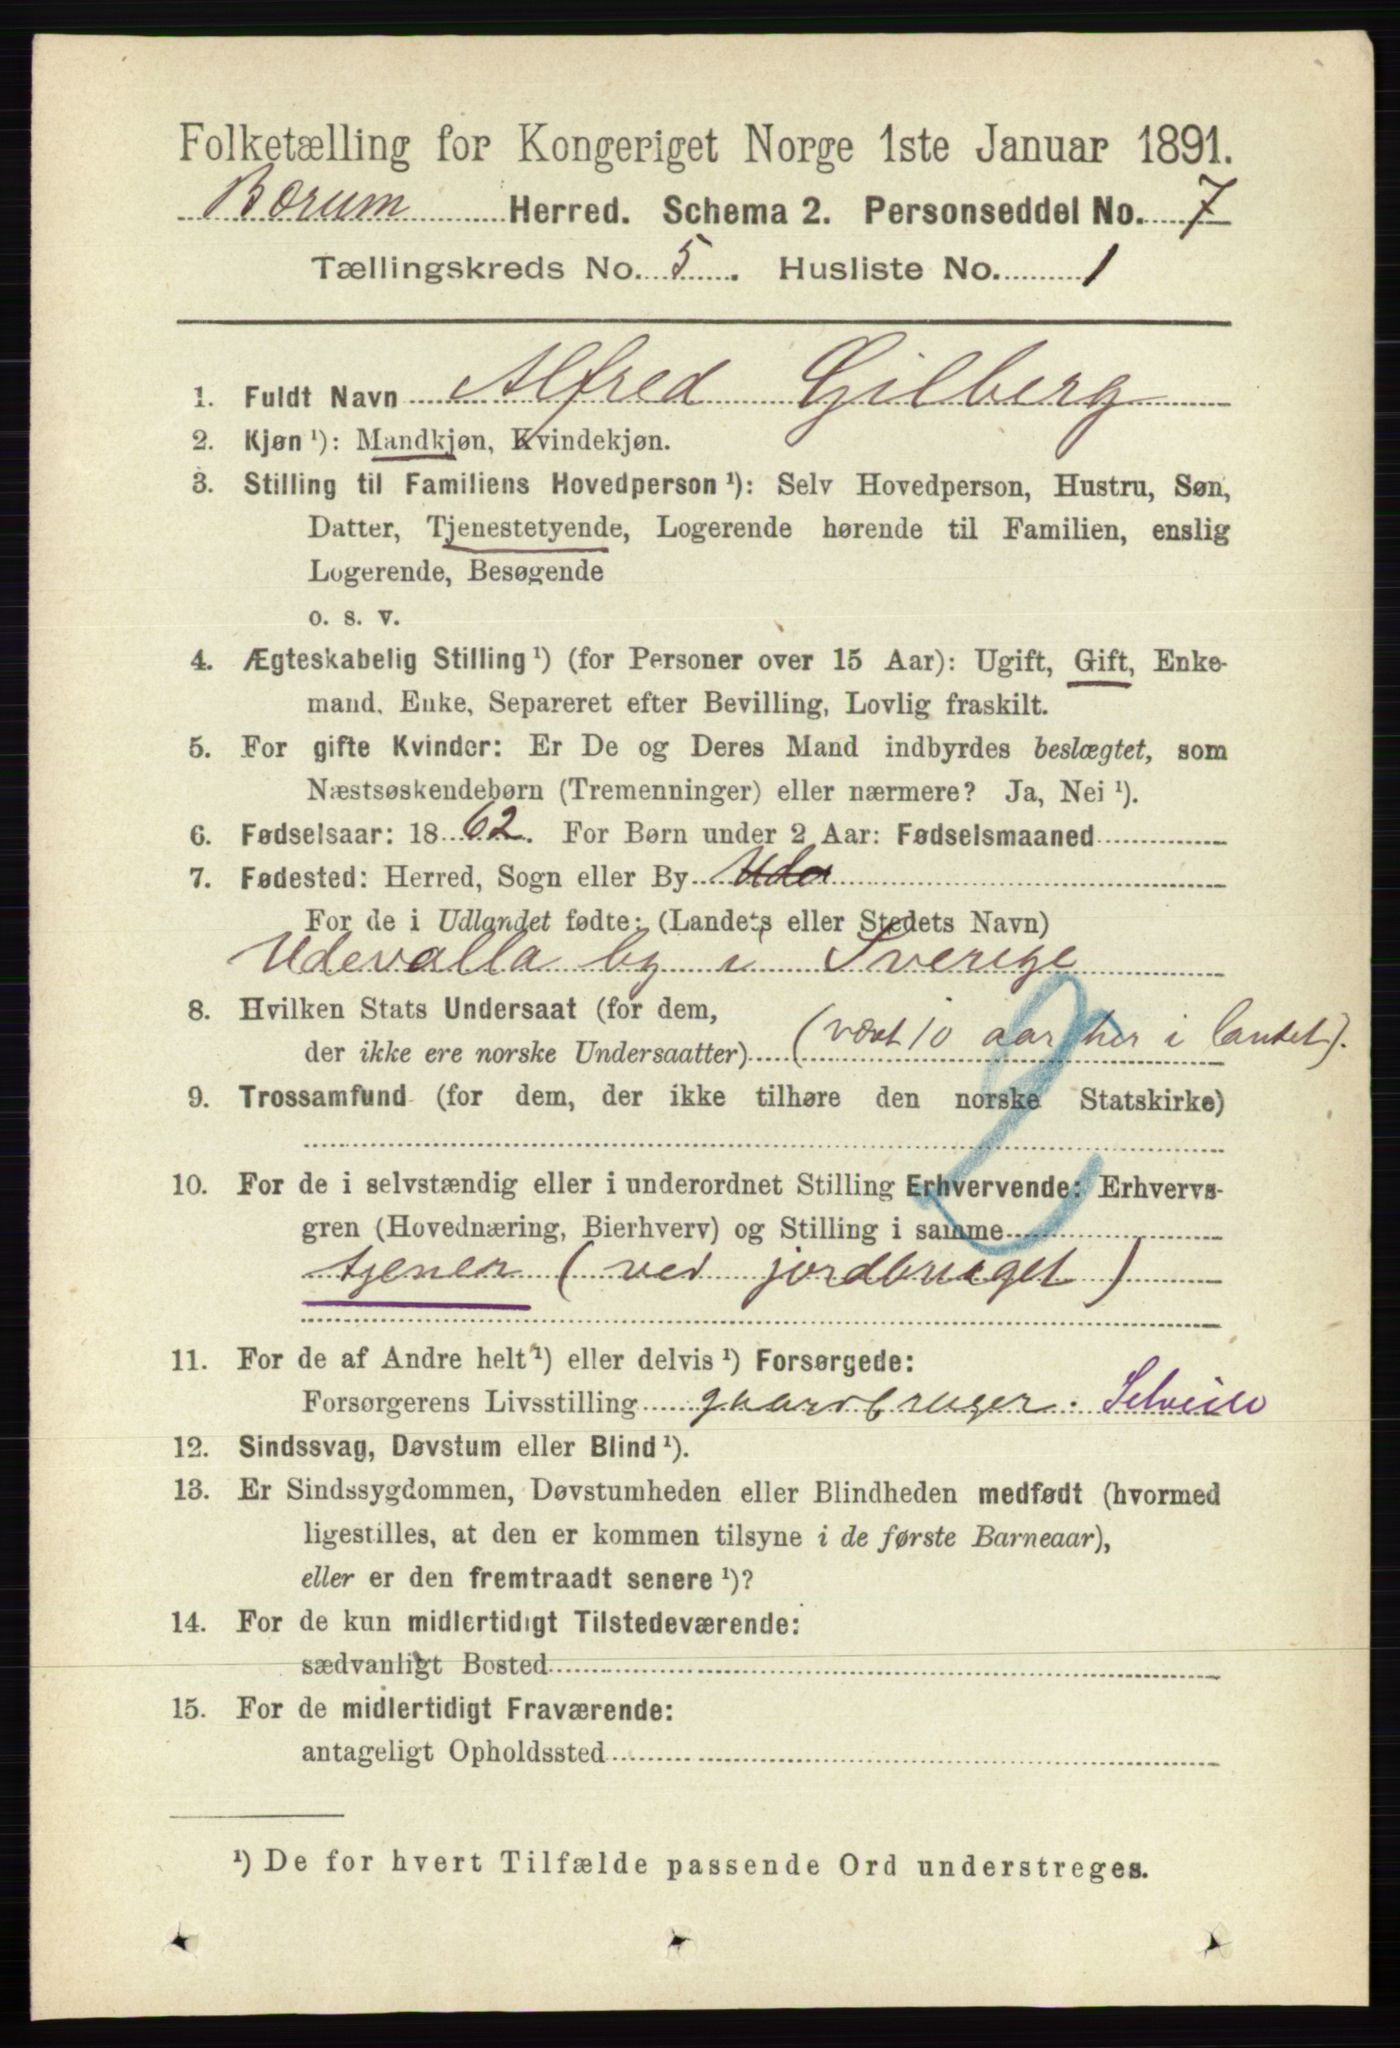 Folketælling for Kongeriget Norge 1ste Januar 1891.
Bærum Herred. Schema 2. Personseddel No. 7
Tællingskreds No. 5. Husliste No. 1
1. Fuldt Navn Alfred Gilberg
2. Kjøn ¹): Mandkjøn, Kvindekjøn.
3. Stilling til Familiens Hovedperson ¹): Selv Hovedperson, Hustru, Søn,
Datter, Tjenestetyende, Logerende hørende til Familien, enslig
Logerende, Besøgende
o. s. v.
4. Ægteskabelig Stilling ¹) (for Personer over 15 Aar): Ugift, Gift, Enke-
mand, Enke, Separeret efter Bevilling, Lovlig fraskilt.
5. For gifte Kvinder: Er De og Deres Mand indbyrdes beslægtet, som
Næstsøskendebørn (Tremenninger) eller nærmere? Ja, Nei ¹).
6. Fødselsaar: 1862. For Børn under 2 Aar: Fødselsmaaned
7. Fødested: Herred, Sogn eller By Ude
For de i Udlandet fødte: (Landets eller Stedets Navn)
Udevalla by i Sverige
8. Hvilken Stats Undersaat (for dem,
der ikke ere norske Undersaatter) (vært 10 aar her i landet).
9. Trossamfund (for dem, der ikke tilhøre den norske Statskirke)
2
10. For de i selvstændig eller i underordnet Stilling Erhvervende: Erhvervs-
gren (Hovednæring, Bierhverv) og Stilling i samme
tjener (ved jordbruget)
11. For de af Andre helt ¹) eller delvis ¹) Forsørgede:
Forsørgerens Livsstilling gaardbruger.
12. Sindssvag, Døvstum eller Blind ¹).
13. Er Sindssygdommen, Døvstumheden eller Blindheden medfødt (hvormed
ligestilles, at den er kommen tilsyne i de første Barneaar),
eller er den fremtraadt senere ¹)?
14. For de kun midlertidigt Tilstedeværende:
sædvanligt Bosted
15. For de midlertidigt Fraværende:
antageligt Opholdssted
¹) De for hvert Tilfælde passende Ord understreges.